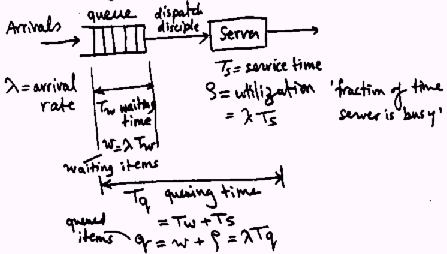 Arrivals
queue
dispatch
disciple
Server
λ = arrival
rate
Tw waiting
time
w = λTw
waiting items
Ts = service time
ρ = utilization 'fraction of time
server is busy'
= λ Ts
Tq queing time
= Tw + Ts
queued
items q = w + ρ = λTq